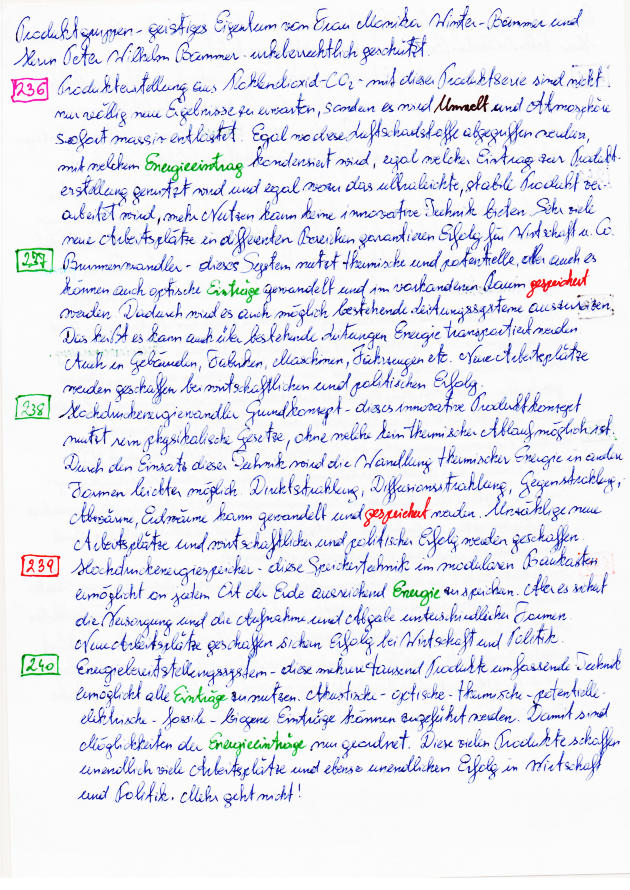 Produktgruppen - geistiges Eigentum von Frau Monika Winter-Bammer und
Herrn Peter Wilhelm Bammer - urheberrechtlich geschützt.
236 Produkterstellung aus Kohlendioxid-CO2 - mit dieser Produktserie sind nicht
nur völlig neue Ergebnisse zu erwarten, sondern es wird Umwelt und Atmosphäre
sofort massiv entlastet. Egal wo diese Luftschadstoffe abgegriffen werden,
mit welchem Energieeintrag kondensiert wird, egal welcher Eintrag zur Produkt-
erstellung genutzt wird und egal wozu das ultraleichte, stabile Produkt ver-
arbeitet wird, mehr Nutzen kann keine innovative Technik bieten. Sehr viele
neue Arbeitsplätze in differenten Bereichen garantieren Erfolg für Wirtschaft u. Co.
237 Brunnenwandler - dieses System nutzt thermische und potentielle, aber auch es
können auch optische Einträge gewandelt und im vorhandenen Raum gespeichert
werden. Dadurch wird es auch möglich bestehende Leitungssysteme
Das heißt es kann auch über bestehende Leitungen Energie transportiert werden
Auch in Gebäuden, Fabriken, Maschinen, Fahrzeugen etc. Neue Arbeitsplätze
werden geschaffen bei wirtschaftlichen und politischen Erfolg.
238 Hochdruckenergiewandler Grundkonzept - dieses innovative Produktkonzept
nutzt rein physikalische Gesetze, ohne welche kein thermischer Ablauf möglich ist.
Durch den Einsatz dieser Technik wird die Wandlung thermischer Energie in andere
Formen leichter möglich. Direktstrahlung, Diffusionsstrahlung, Gegenstrahlung,
Abwärme, Erdwärme kann gewandelt und gespeichert werden. Unzählige neue
Arbeitsplätze und wirtschaftlicher und politischer Erfolg werden geschaffen.
239 Hochdruckenergiespeicher - diese Speichertechnik im modularen Baukasten
ermöglicht an jedem Ort der Erde ausreichend Energie zu speichern. Aber es sichert
die Versorgung und die Aufnahme und Abgabe unterschiedlicher Formen.
Neue Arbeitsplätze geschaffen sichern Erfolg bei Wirtschaft und Politik.
240 Energiebereitstellungssystem - diese mehrere tausend Produkte umfassende Technik
ermöglicht alle Einträge zu nutzen. Akustische - optische - thermische - potentielle -
elektrische - fossile - biogene Einträge können zugeführt werden. Damit sind
Möglichkeiten der Energieeinträge nur geordnet. Diese vielen Produkte schaffen
unendlich viele Arbeitsplätze und ebenso unendlichen Erfolg in Wirtschaft
und Politik. Mehr geht nicht!